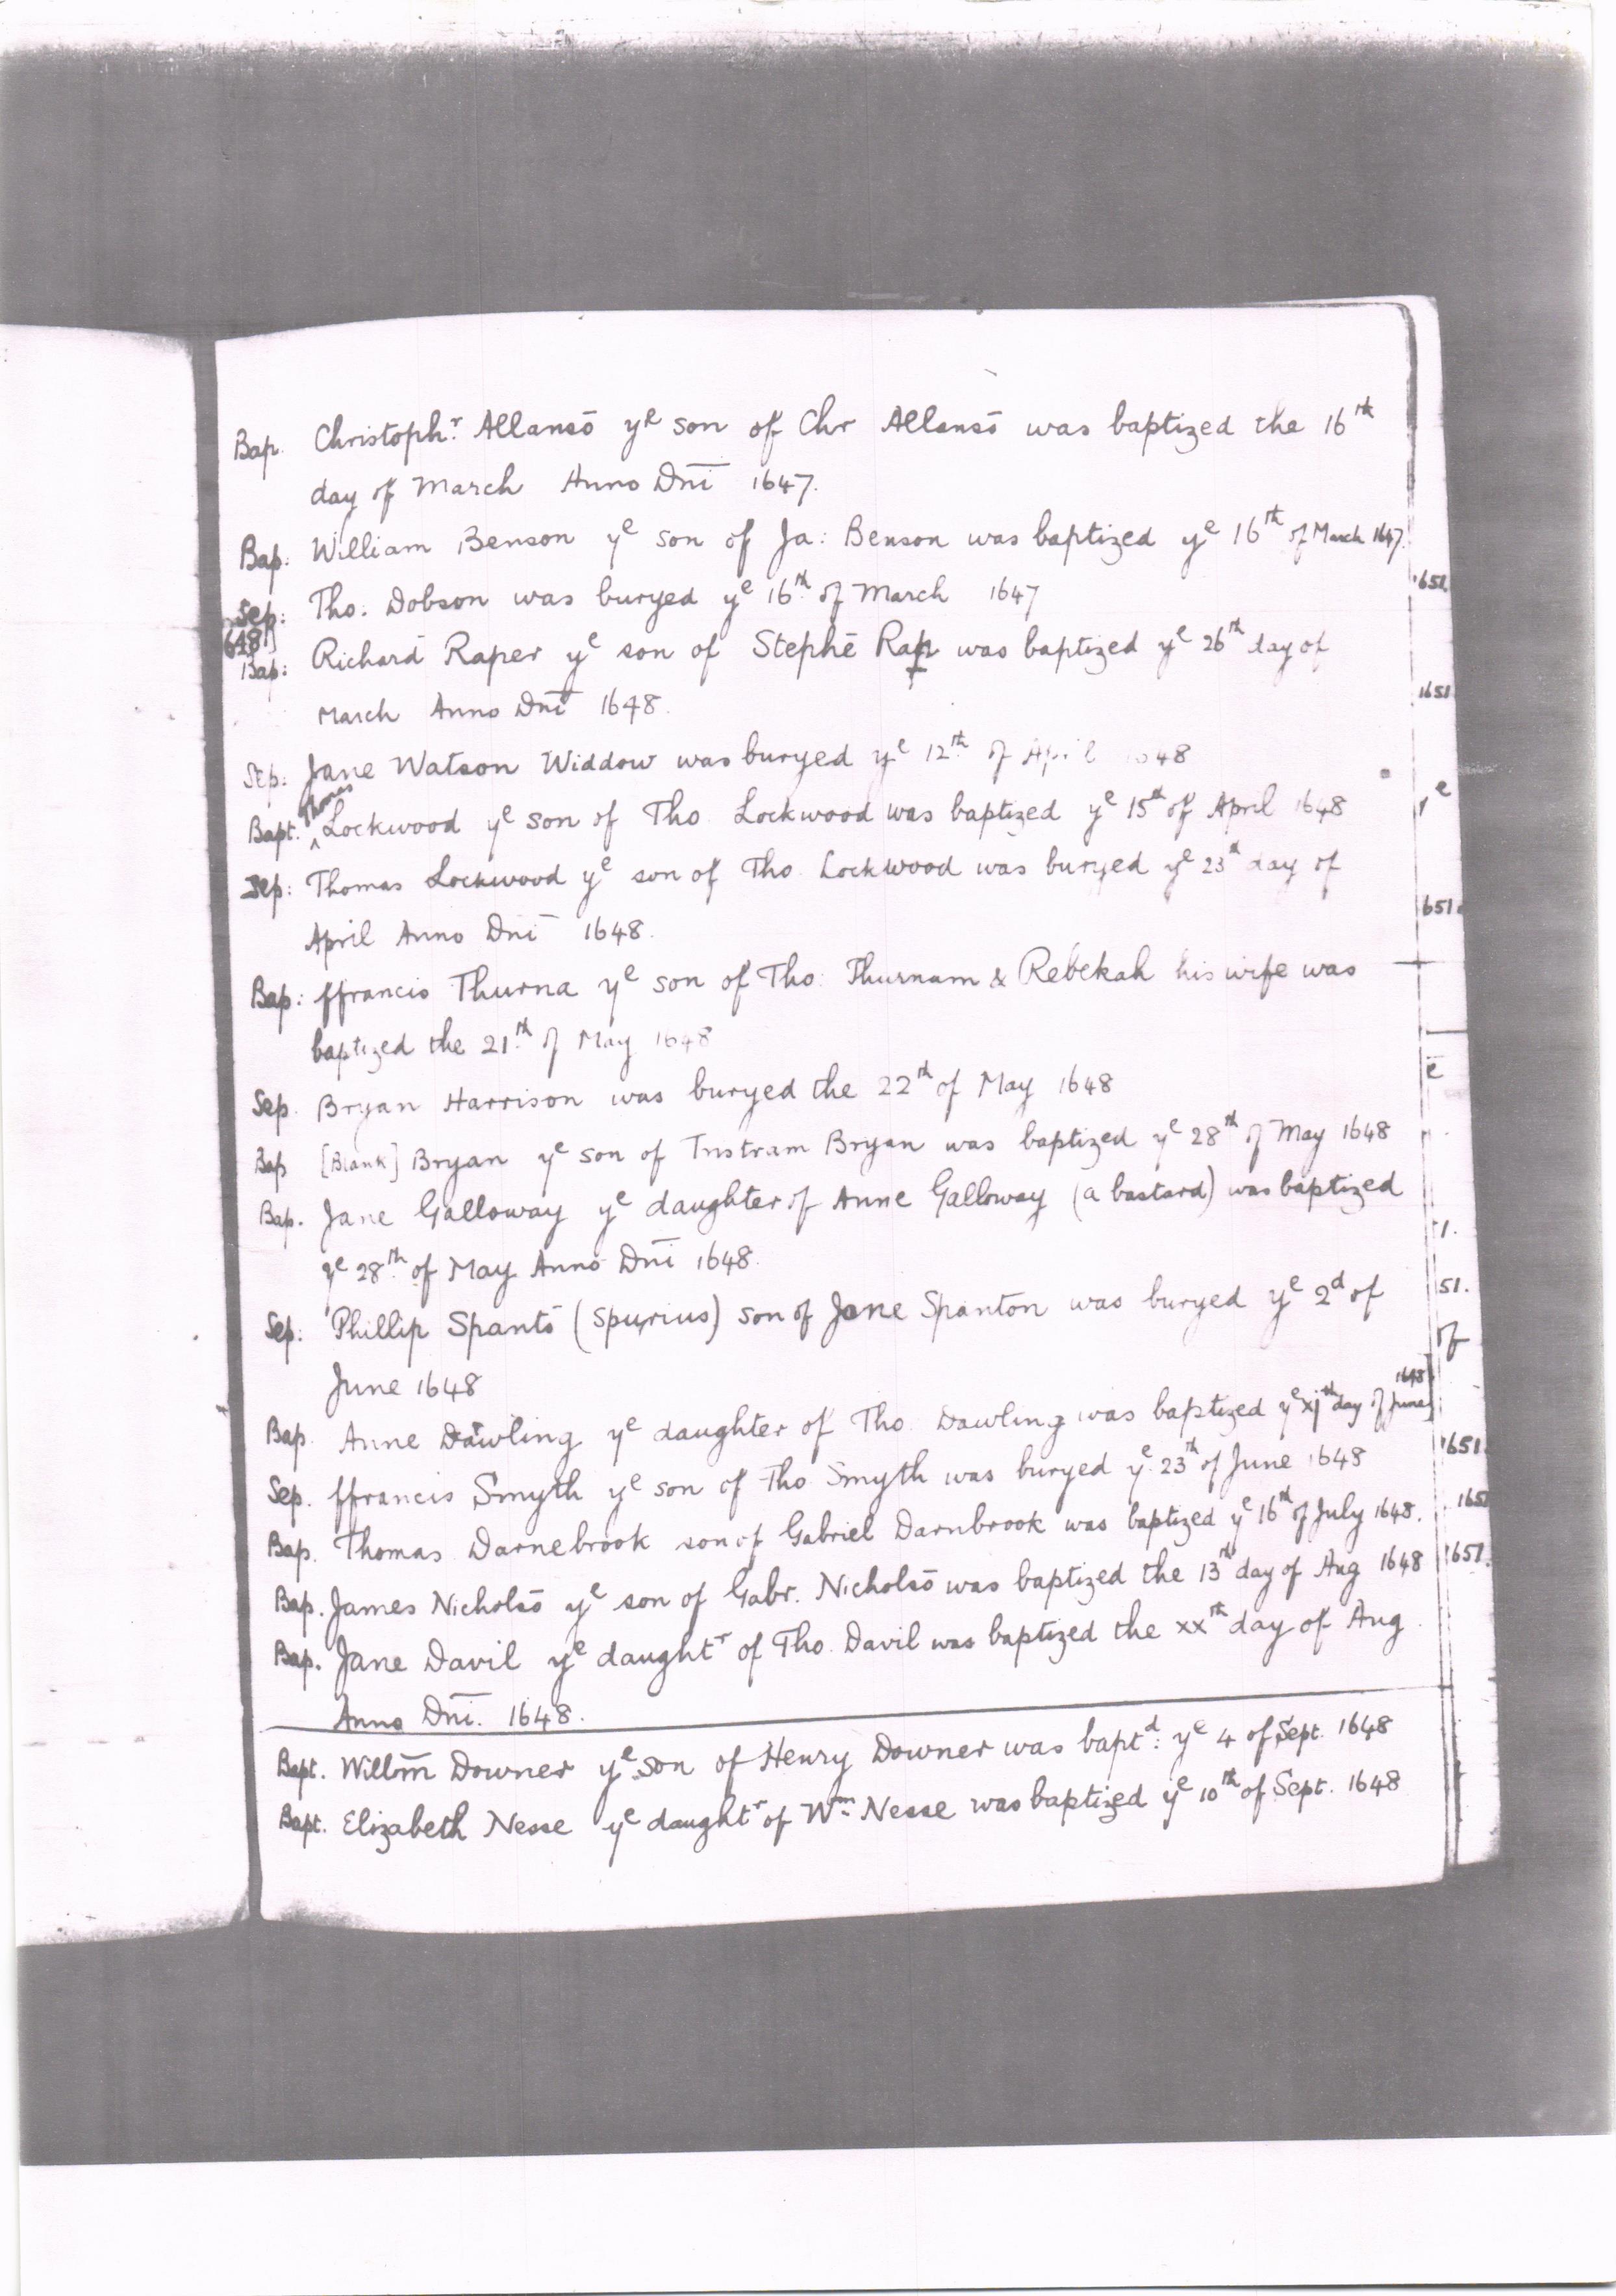 Bap. Christophr. Allansō ye son of Chr Allansō was baptized the 16th
day of March Anno Dni 1647.
Bap. William Benson ye son of Ja: Benson was baptized ye 16th of March 1647.
Sep: Tho: Dobson was buryed ye 16th of March 1647
648]
Bap: Richard Raper ye son of Stephē Rap was baptized ye 26th day of
March Anno Dni 1648.
Sep: Jane Watson Widdow was buryed ye 12th of April 1648
Bapt. Thomas Lockwood ye son of Tho Lockwood was baptized ye 15th of April 1648
Sep: Thomas Lockwood ye son of Tho. Lockwood was buryed ye 23d day of
April Anno Dni 1648.
Bap: ffrancis Thurna ye son of Tho: Thurnam & Rebekah his wife was
baptized the 21th of May 1648
Sep. Bryan Harrison was buryed the 22th of May 1648
Bap [Blank] Bryan ye son of Tristram Bryan was baptized ye 28th of May 1648
Bap. Jane Galloway ye daughter of Anne Galloway (a bastard) was baptized
ye 28th of May Anno Dni 1648.
Sep: Phillip Spantō (spurius) son of Jane Spanton was buryed ye 2d of
June 1648
Bap. Anne Dawling ye daughter of Tho. Dawling was baptized ye xjth day of June 1648
Sep. ffrancis Smyth ye son of Tho Smyth was buryed ye 23th of June 1648
Bap. Thomas Darnebrook son of Gabriel Darnbrook was baptized ye 16th of July 1648.
Bap. James Nicholsō ye son of Gabr. Nicholsō was baptized the 13th day of Aug 1648
Bap. Jane Davil ye daughtr of Tho. Davil was baptized the xxth day of Aug.
Anno Dni. 1648.
Bapt. Willm Downer ye son of Henry Downer was baptd: ye 4 of Sept. 1648
Bapt. Elizabeth Nesse ye daughtr of Wm Nesse was baptized ye 10th of Sept. 1648
1651
1651
e
651.
1.
51.
of
1651
1651
1651.